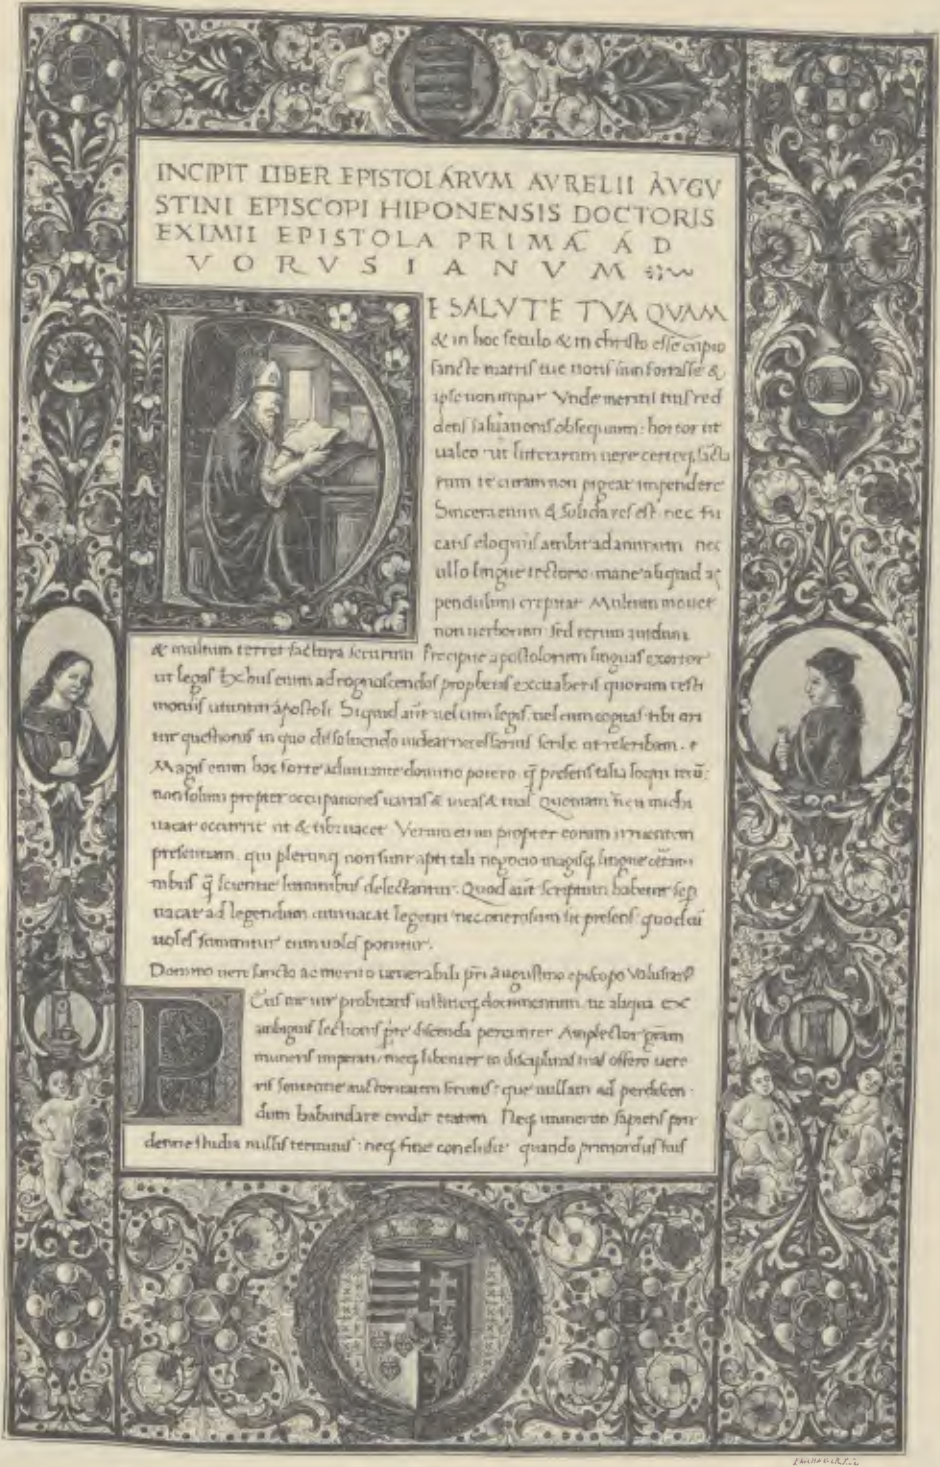 INCIPIT LIBER EPISTOLARVM AVRELII AVGV
STINI EPISCOPI HIPONENSIS DOCTORIS
EXIMII EPISTOLA PRIMA AD
VORVSIANVM
D
E SALVTE TVA QVAM
& in hoc seculo & in christo esse cupio
sancte matris tue uotis sum fortasse &
ipse non impar Vnde meritis tuis red
dens salutationis obsequium: hortor ut
ualeo ut litterarum uere certeq, sancta
rum te curam non pigeat impendere
Sincera enim & solida res est nec fu
catis eloquiis ambit ad animum nec
ullo lingue tectorio inane aliquid ac
pendulum crepitat Multum mouet
non uerborum sed rerum auidum
& multum terret factura securum Precipue apostolorum linguas exortor
ut legas Ex his enim ad cognoscendos prophetas excitaberis quorum testi
moniis utuntur apostoli. Siquid aut uel cum legis uel cum cogitas tibi ori
tur questionis in quo dissoluendo uidear necessarius scribe ut rescribam.
Magis enim hoc forte adiuuante domino potero q̄ presens talia loqui tecū:
non solum propter occupationes uarias & meas & tuas Quoniam
uacat occurrit ut & tibi uacet Verum etiam propter eorum irruentem
presentiam qui plerunq, non sunt apti tali negocio magisq, lingue certami
nibus q̄ scientie luminibus delectantur. Quod aut scriptum habetur semp
uacat ad legendum cum uacat legenti nec onerosum fit presens quod cū
uoles sumitur cum uoles ponitur.
Domino uere sancto ac merito uenerabili pri augustino episcopo Volusian9
P
etis me uir probitatis iustitieq, documentum ut aliqua ex
ambiguis lectionis pite discenda percunter Amplector gram
muneris imperati meq, libenter in disciplinas tuas offero uete
ris sententie auctoritatem secutus: que nullam ad perdiscen
dum habundare credit etatem Neq, immerito sapiens pru
dentie studia nullis terminis: neq, fine conclusit quando primordiis suis